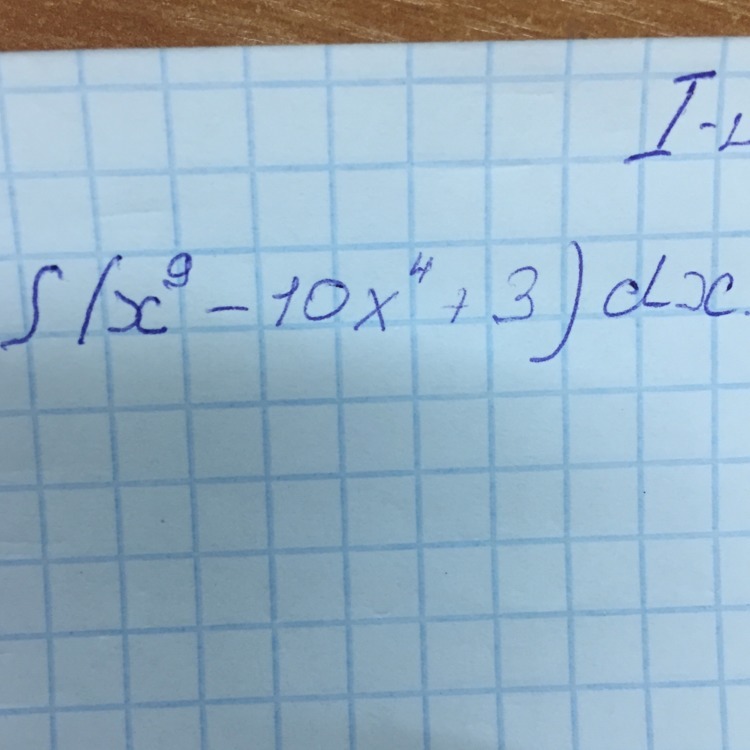 I-
∫(x⁹ - 10x⁴ + 3) dx.